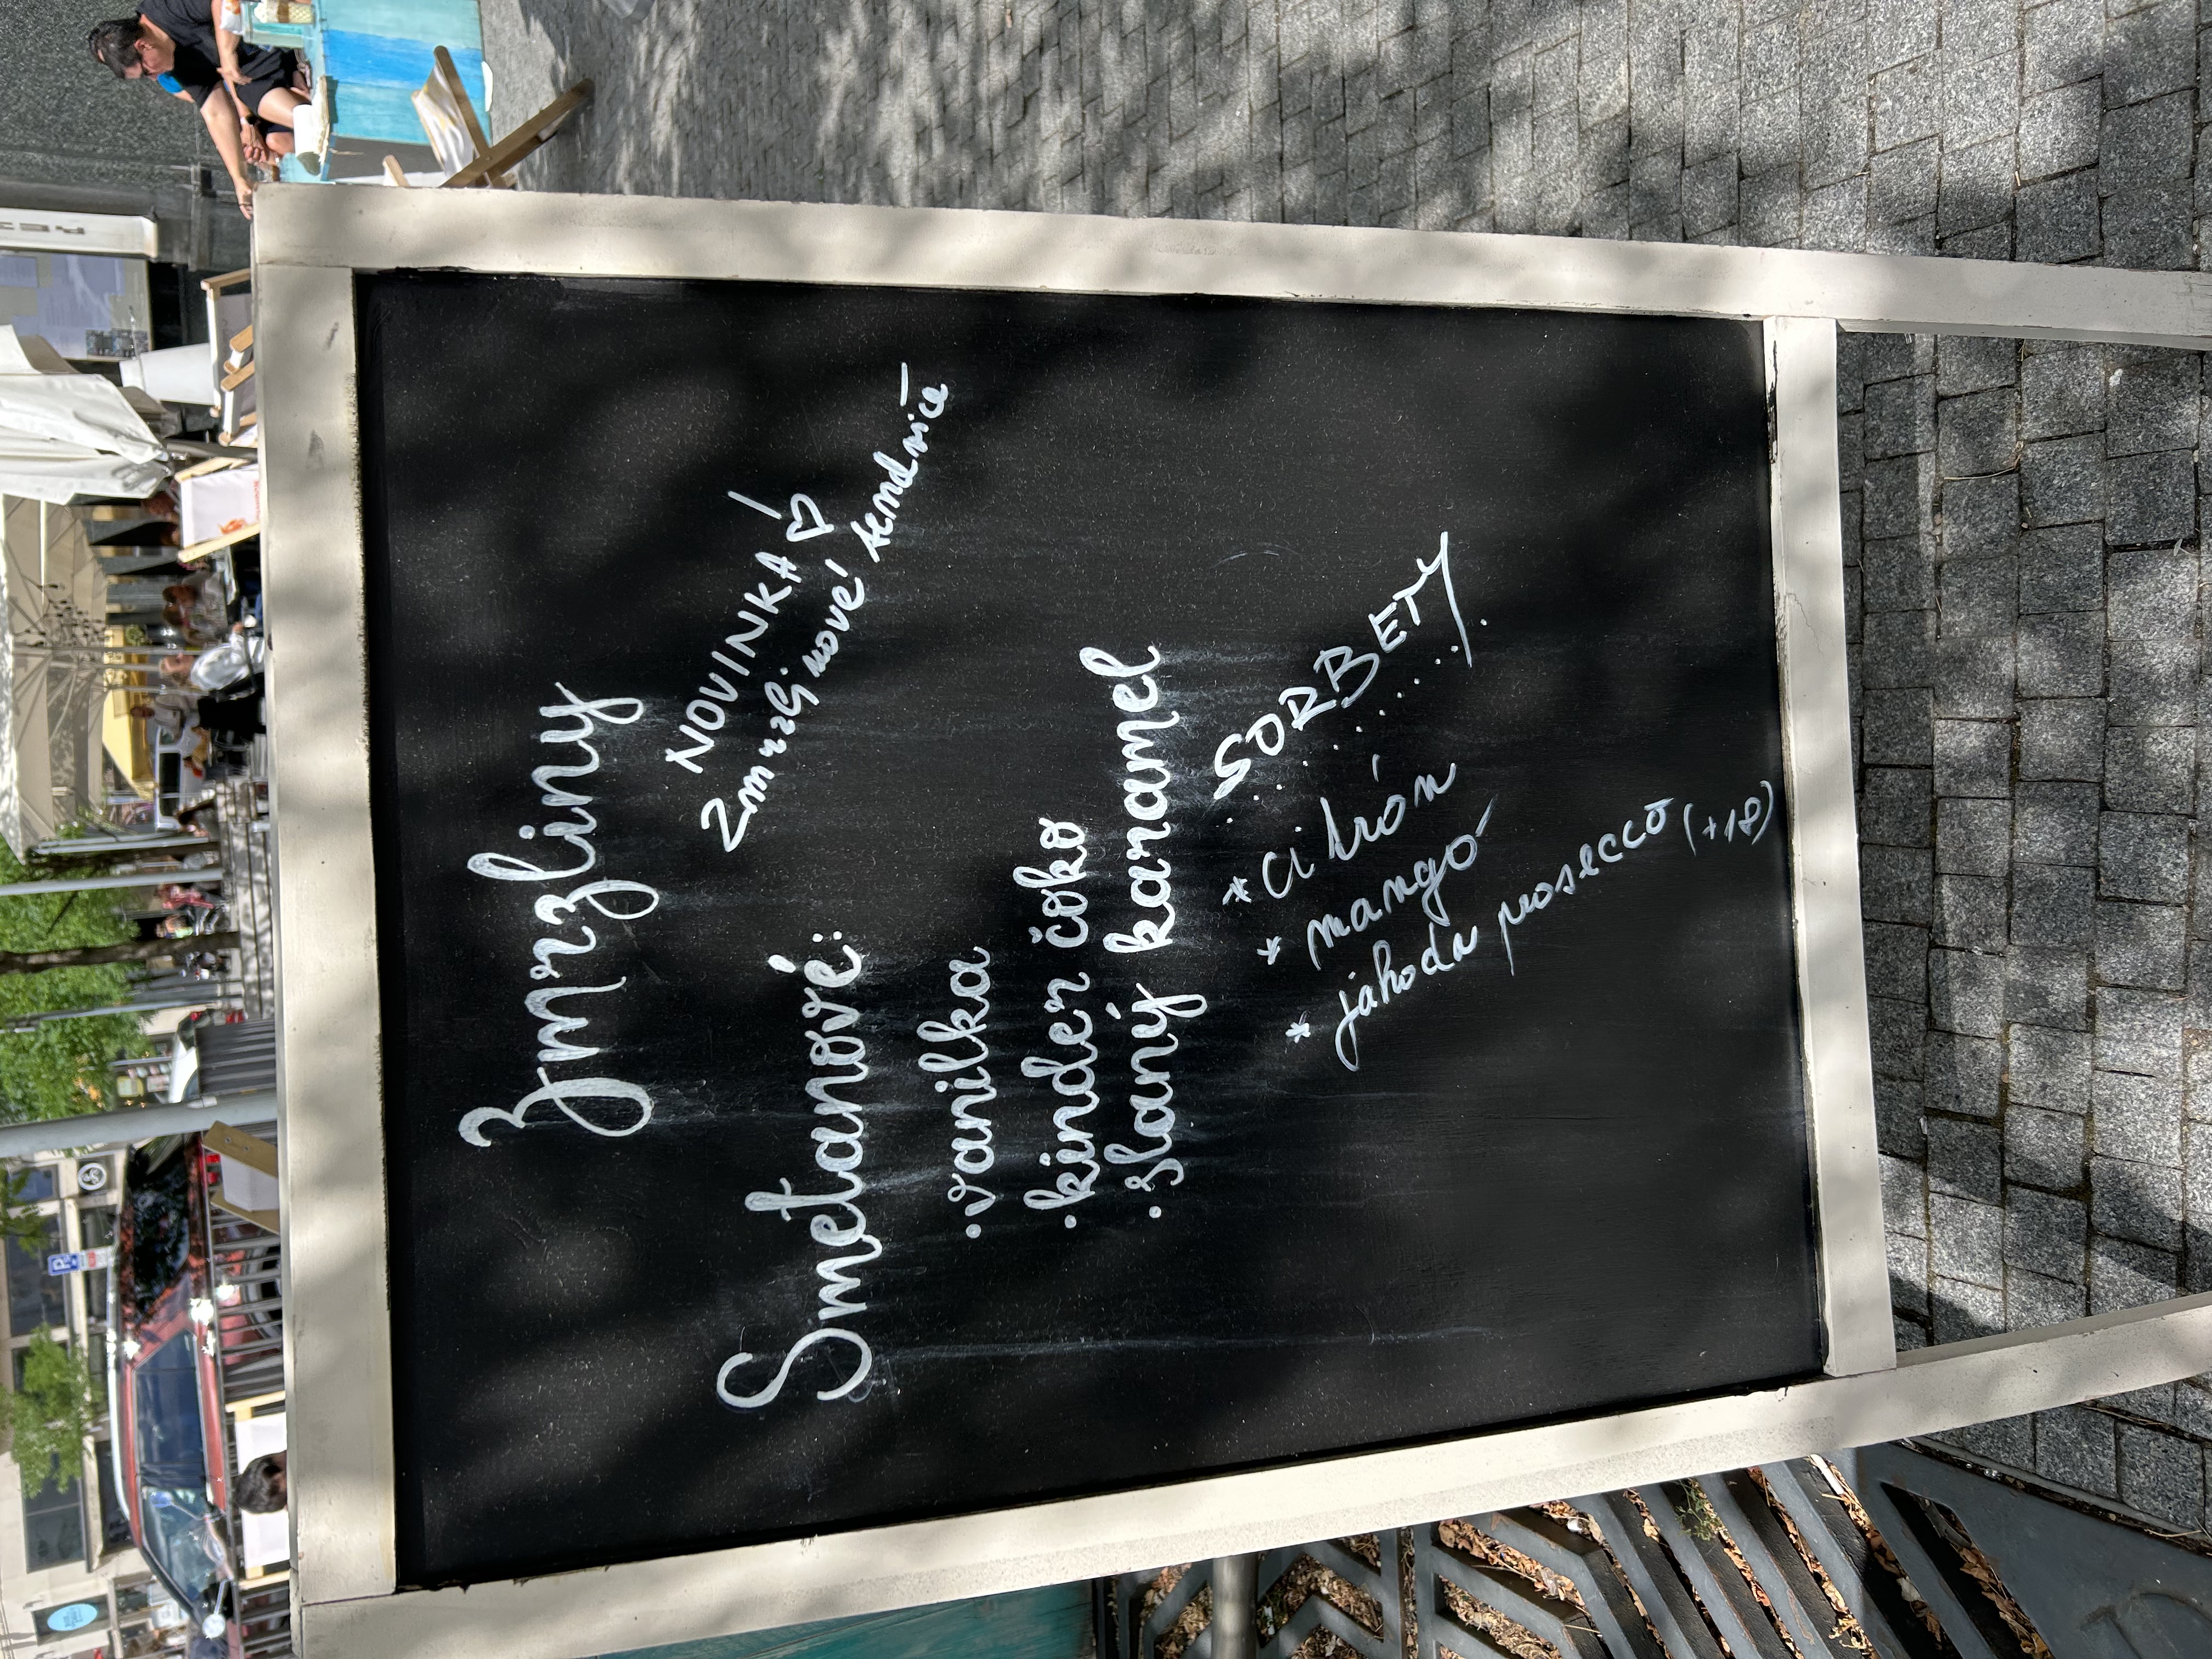 Zmrzliny
NOVINKA! ♡
Zmrzlinové sendviče
Smetanové:
• vanilka
• kinder čoko
• slaný karamel
SORBETY
* citrón
* mangó
* jahoda prosecco (+18)